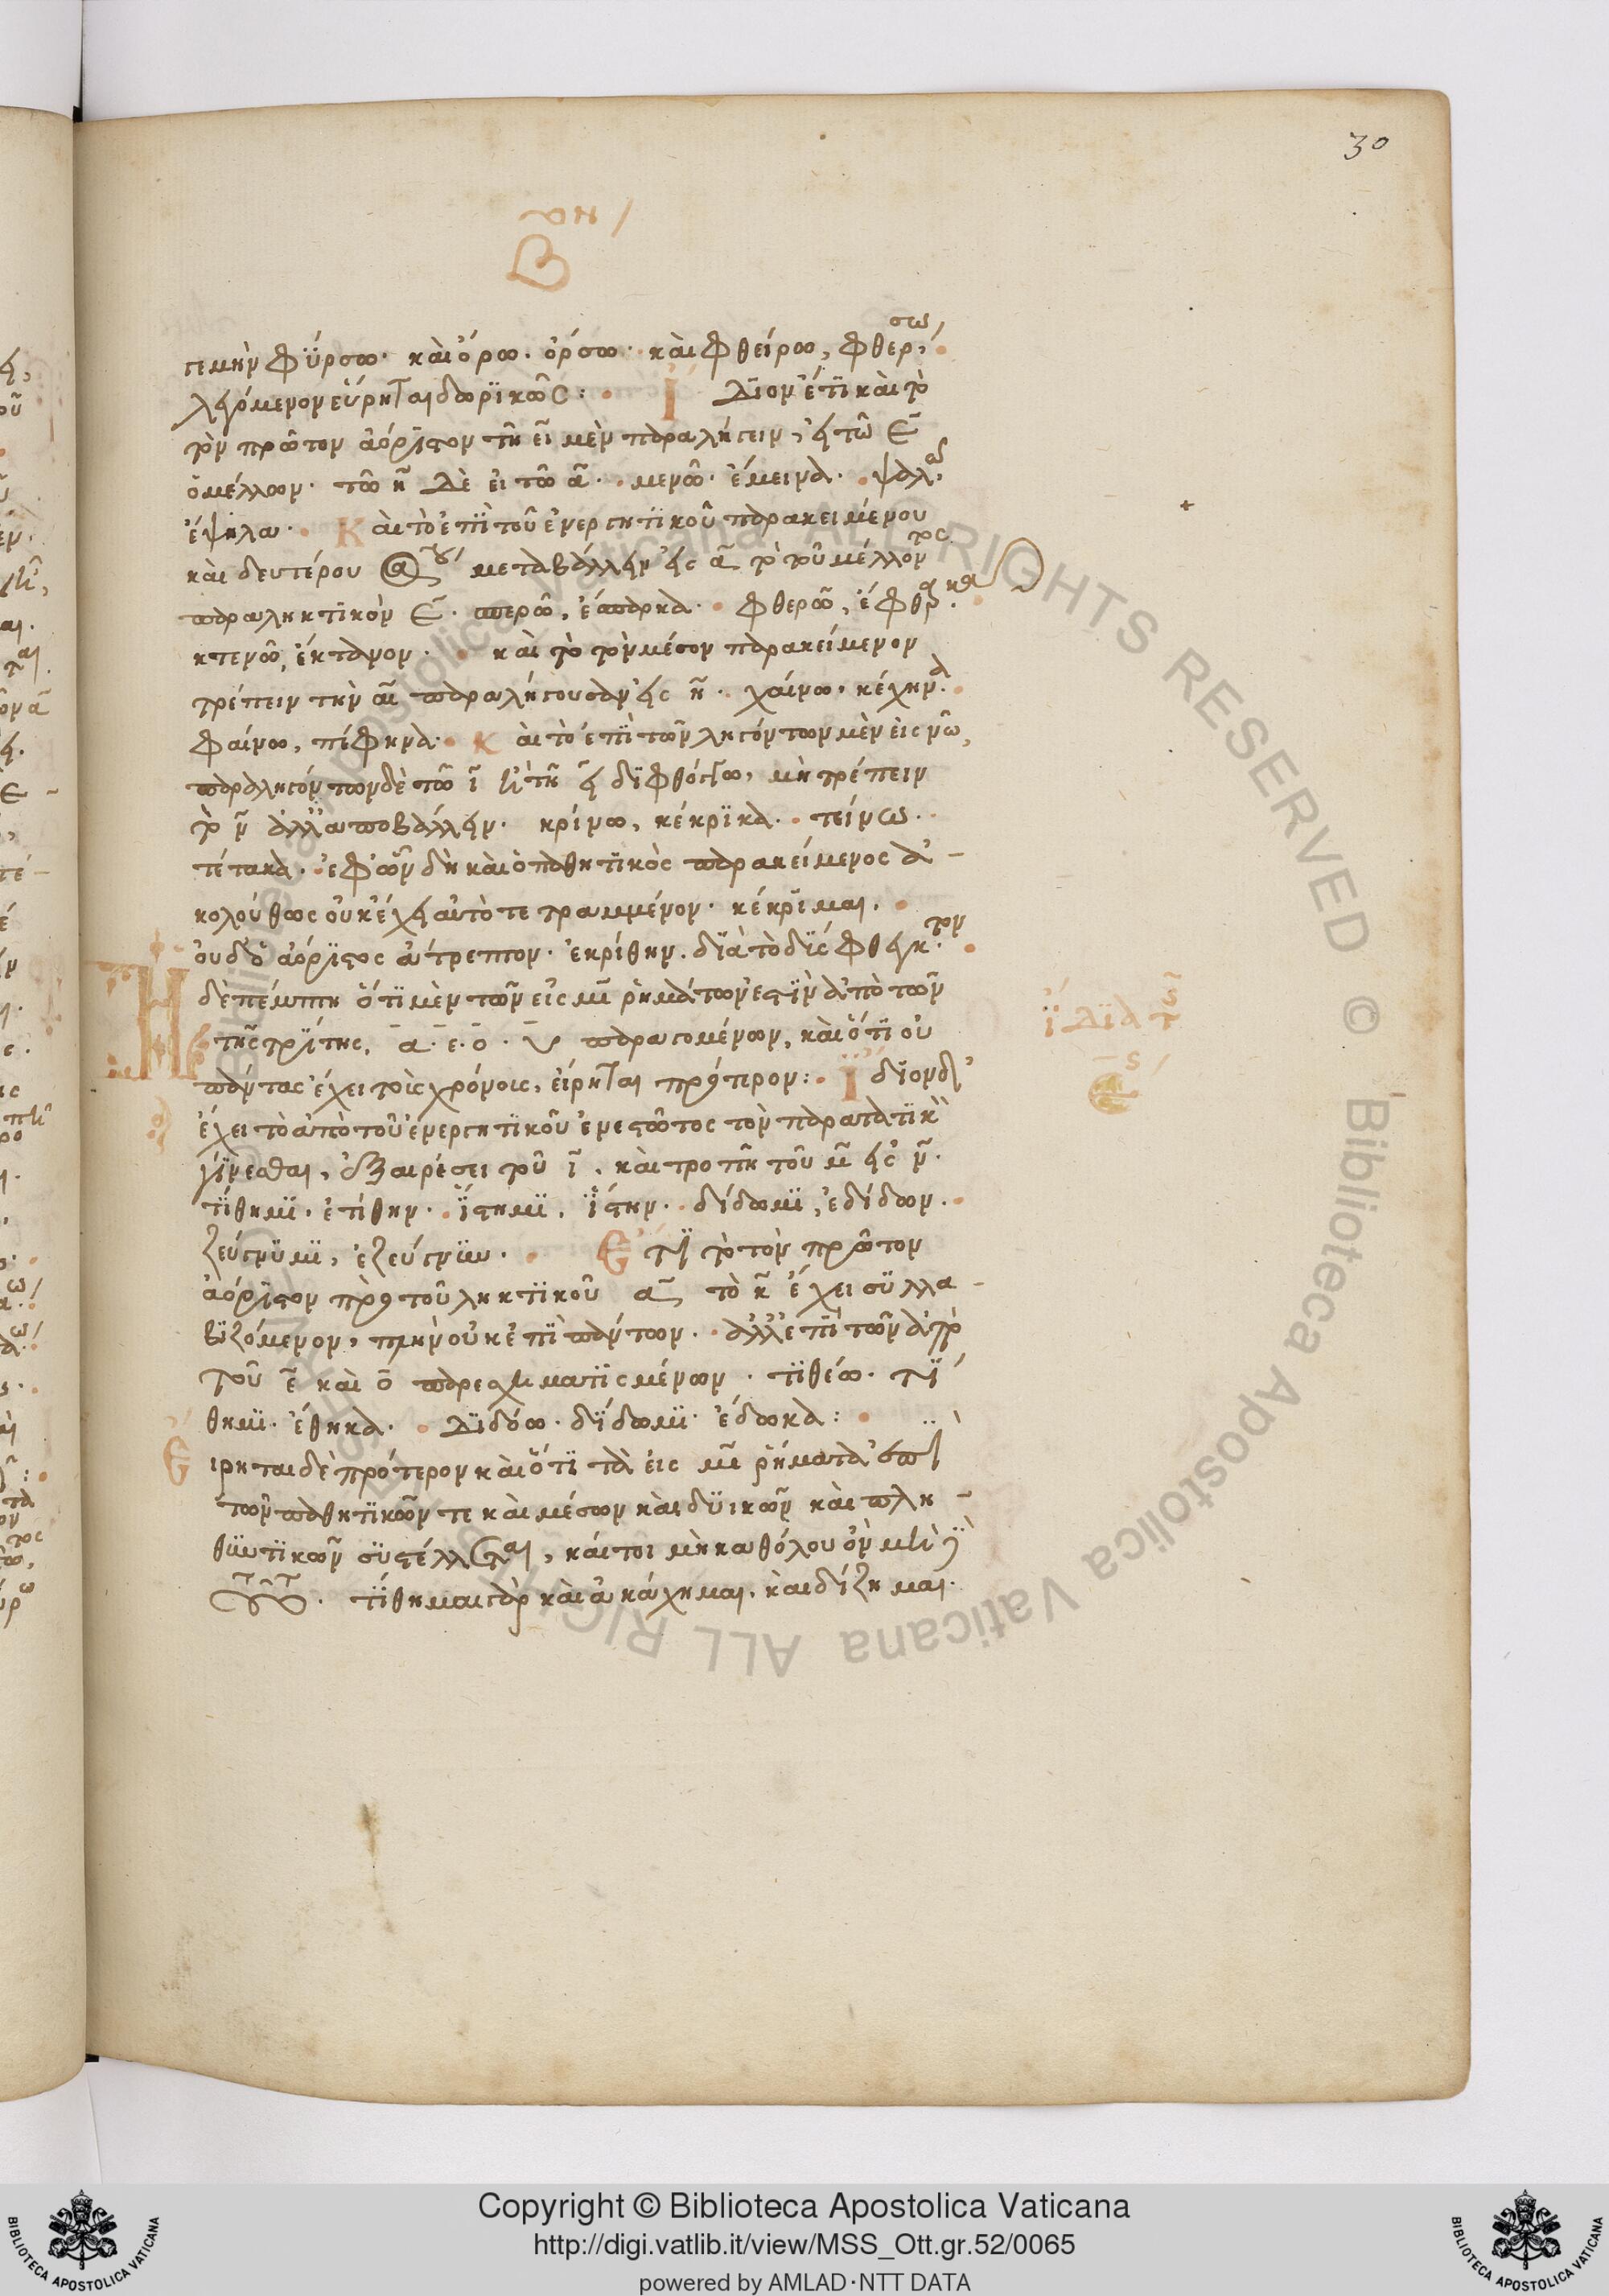 30
β
πλὴν φύρσω. καὶ ὄρω. ὄρσω. καὶ φθείρω, φθέρσω
λεγόμενον εὕρηται δωρικῶς: Ἴδιον ἔτι καὶ τὸ
τὸν πρῶτον ἀόριστον τῇ ει μὲν παραλήγειν, εἰ τῷ ε
ὁ μέλλων. τῷ η δὲ εἰ τῷ α. μενῶ. ἔμεινα. ψαλῶ
ἔψηλα. Καὶ τὸ ἐπὶ τοῦ ἐνεργητικοῦ παρακειμένου
καὶ δευτέρου μεταβάλλειν εἰς α τὸ τοῦ μέλλοντος
παραληκτικὸν ε. σπερῶ, ἔσπαρκα. φθερῶ, ἔφθαρκα
κτενῶ, ἔκτανον. καὶ τὸ τὸν μέσον παρακείμενον
τρέπειν τὴν αι παραλήγουσαν εἰς η. χαίνω, κέχηνα.
φαίνω, πέφηνα. Καὶ τὸ ἐπὶ τῶν ληγόντων μὲν εἰς νω,
παραληγόντων δὲ τῷ ι ἢ τῇ ει διφθόγγω, μὴ τρέπειν
τὸ ν ἀλλ' ἀποβάλλειν. κρίνω, κέκρικα. τείνω.
τέτακα. ἐφ' ὧν δὴ καὶ ὁ παθητικὸς παρακείμενος ἀ-
κολούθως οὐκ ἔχει αὐτὸ τετραμμένον. κέκριμαι.
οὐδ' ὁ ἀόριστος ἄτρεπτον. ἐκρίθην. διὰ τὸ δισέφθεκτον
Ἡ δὲ πέμπτη ὅτι μὲν τῶν εἰς μι ῥημάτων ἐστὶν ἀπὸ τῶν
τῆς τρίτης, α. ε. ο. υ παραγομένων, καὶ ὅτι οὐ
ἴδια τῆς
ε
πάντας ἔχει τοὺς χρόνους, εἴρηται πρότερον: Ἴδιον δ'
ἔχει τὸ ἀπὸ τοῦ ἐνεργητικοῦ ἐνεστῶτος τὸν παρατατικὸν
γίνεσθαι, ἐξαιρέσει τοῦ ι, καὶ τροπῇ τοῦ μ εἰς ν.
τίθημι. ἐτίθην. ἵστημι, ἵστην. δίδωμι, ἐδίδων.
ζεύγνυμι, ἐζεύγνυν. Ἔτι τὸ τὸν πρῶτον
ἀόριστον πρὸ τοῦ ληκτικοῦ α, τὸ κ ἔχει συλλα-
βιζόμενον, πλὴν οὐκ ἐπὶ πάντων. ἀλλ' ἐπὶ τῶν ἀπὸ
τοῦ ε καὶ ο παρεσχηματισμένων. τιθέω. τί
θημι. ἔθηκα. Διδόω. δίδωμι. ἔδωκα:
Εἴρηται δὲ πρότερον καὶ ὅτι τὰ εἰς μι ῥήματα ἐπὶ
τῶν παθητικῶν τε καὶ μέσων καὶ δυικῶν καὶ πλη-
θυντικῶν συστέλλεται, καίτοι μὴ καθόλου ὂν
τίθημαι γὰρ καὶ ἀκάχημαι, καὶ δίζημαι.
Copyright © Biblioteca Apostolica Vaticana
http://digi.vatlib.it/view/MSS_Ott.gr.52/0065
powered by AMLAD·NTT DATA